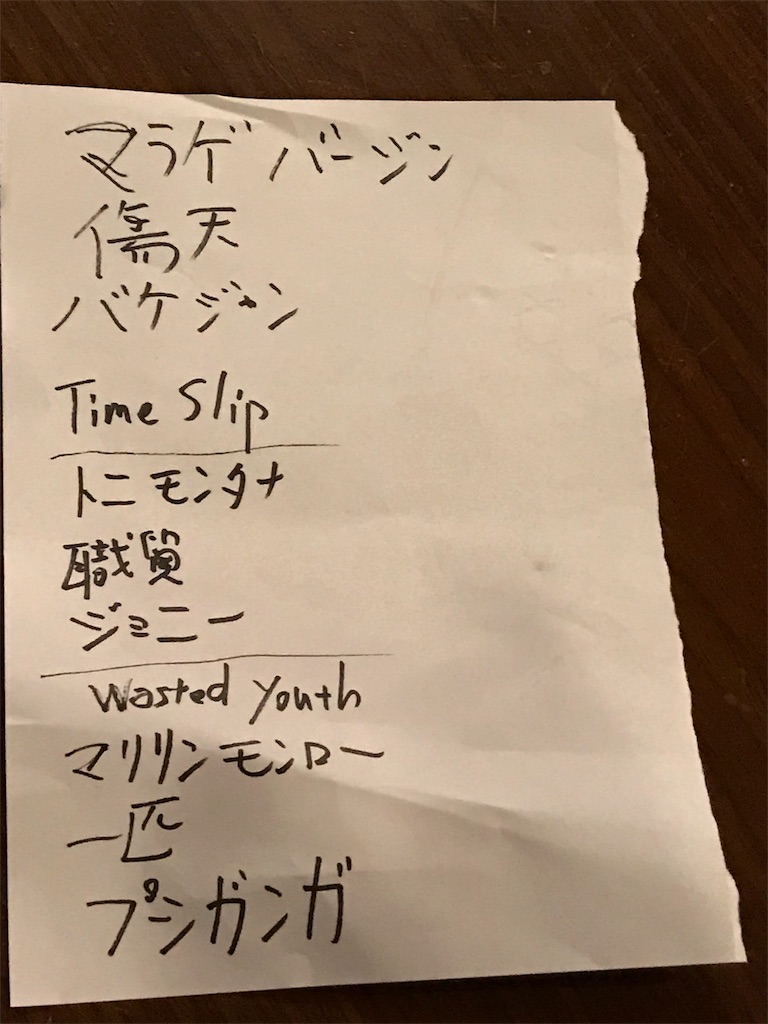 マラゲバージン
傷天
バケジャン
Time Slip
トニモンタナ
職質
ジミニー
Wasted Youth
マリリンモンロー
一匹
プシガンガ